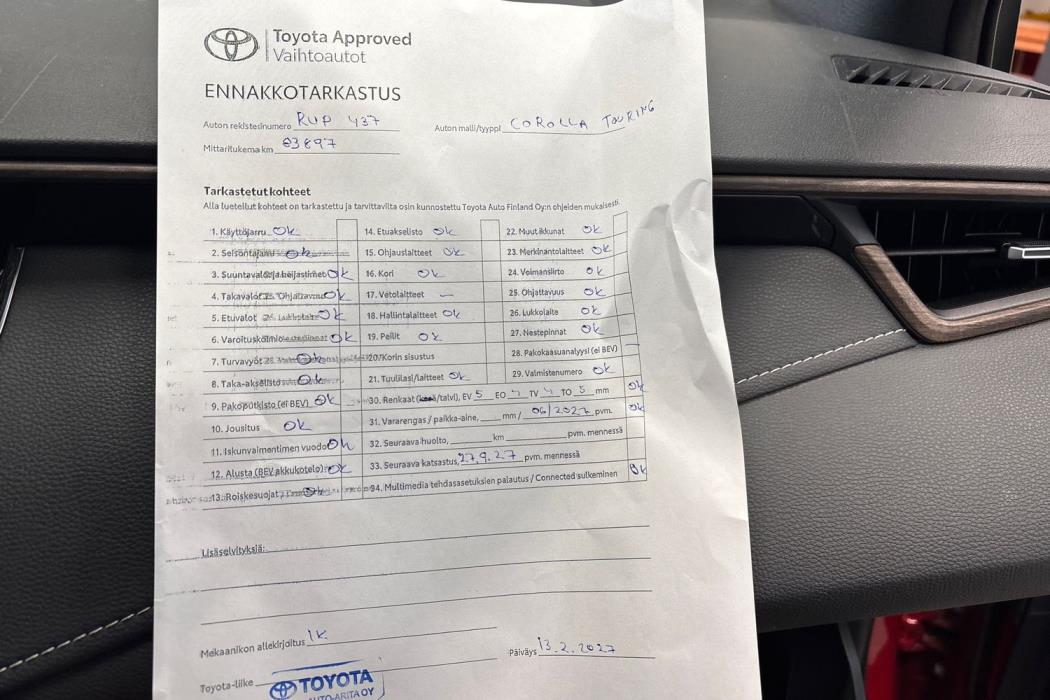 Toyota Approved
Vaihtoautot
ENNAKKOTARKASTUS
Auton rekisterinumero RUP 437
Auton malli/tyyppi COROLLA TOURING
Mittarilukema km 83897
Tarkastetut kohteet
Alla luetellut kohteet on tarkastettu ja tarvittavilta osin kunnostettu Toyota Auto Finland Oy:n ohjeiden mukaisesti.
1. Käyttöjarru Ok
2. Seisontajarru Ok
3. Suuntavalot ja heijastimet Ok
4. Takavalot Ok
5. Etuvalot Ok
6. Varoituskolmio Ok
7. Turvavyöt Ok
8. Taka-akselisto Ok
9. Pakoputkisto (ei BEV) Ok
10. Jousitus Ok
11. Iskunvaimentimen vuodot Ok
12. Alusta (BEV akkukotelo) Ok
13. Roiskesuojat Ok
14. Etuakselisto Ok
15. Ohjauslaitteet Ok
16. Kori Ok
17. Vetolaitteet —
18. Hallintalaitteet Ok
19. Peilit Ok
20. Korin sisustus
21. Tuulilasi/laitteet Ok
22. Muut ikkunat Ok
23. Merkinantolaitteet Ok
24. Voimansiirto Ok
25. Ohjattavuus Ok
26. Lukkolaite Ok
27. Nestepinnat Ok
28. Pakokaasuanalyysi (ei BEV) —
29. Valmistenumero Ok
30. Renkaat (kesä/talvi), EV 5 EO 4 TV 4 TO 5 mm Ok
31. Vararengas / paikka-aine, mm / 06/2027 pvm. Ok
32. Seuraava huolto, km pvm. mennessä
33. Seuraava katsastus, 27.9.27 pvm. mennessä
34. Multimedia tehdasasetuksien palautus / Connected sulkeminen Ok
Lisäselvityksiä:
Mekaanikon allekirjoitus IK
Päiväys 13.2.2027
Toyota-liike TOYOTA
AUTO-ARITA OY